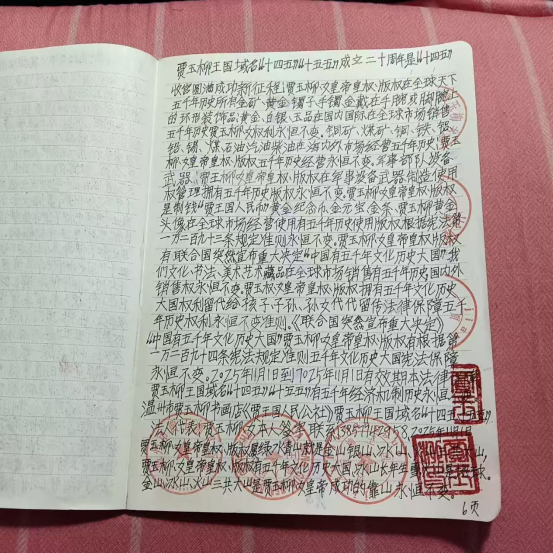 贾玉柳王国域名“十四五”“十五五”成立二十周年是“十四五”
收官圆满成功新征程贾玉柳女皇帝皇权、版权在全球天下
五千年历史所有金矿、黄金镯子手镯金戴在手腕或脚腕上
的环形装饰品黄金、白银、玉品在国内国际在全球市场销售
五千年历史贾玉柳女权利永恒不变。铜矿、煤矿、铜、铁、铝
铅、锡、煤石油汽油柴油在 市场经营五千年历史贾玉
柳女皇帝皇权、版权五千年历史经营永恒不变。军事部队设备
武器、贾玉柳女皇帝皇权、版权在军事设备武器制造使用
权管理拥有五千年历史版权永恒不变。贾玉柳女皇帝皇权、版权
是制钱“贾王国人民币”黄金纪念币、金元宝、金条、贾玉柳黄金
头像在全球市场经营使用有五千年历史使用版权根据宪法第
一万二百九十三条规定准则永恒不变。贾玉柳女皇帝皇权、版权
有《联合国突然宣布重大决定“中国有五千年文化历史大国”》我
们文化、书法、美术艺术藏品在全球市场销售有五千年历史国内外
销售权永恒不变。贾玉柳女皇帝皇权、版权拥有五千年文化历史
大国权利留代给孩子、子孙、孙女代代留传法律保障五千
年历史权利永恒不变准则。《联合国突然宣布重大决定》
“中国有五千年文化历史大国”贾玉柳女皇帝皇权、版权有根据第
一万二百九十四条宪法规定准则五千年文化历史大国宪法保障
永恒不变。2025年11月1日到7025年11月1日有效期本法律
贾玉柳王国域名“十四五”“十五五”有五千年经济机制历史永恒
温州市贾玉柳书画店《贾王国人民公社》贾玉柳王国域名“十四五”“十五五”
法人代表：贾玉柳女本人签名 联系 2025年11月1日
贾玉柳女皇帝皇权、版权是绿水青山就是金山银山、冰山、
贾玉柳女皇帝皇权、版权有五千年文化历史大国、火山长年年
金山、冰山、火山三共大山是贾玉柳女皇帝成功的靠山永恒不变。
6页